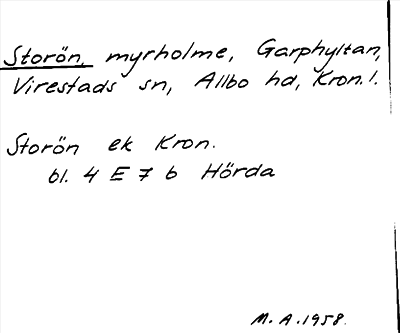 Storön, myrholme, Garphyltan,
Virestads sn, Allbo hd, Kron. l.
Storön ek Kron.
bl. 4 E 7 b Hörda
M. A. 1958.